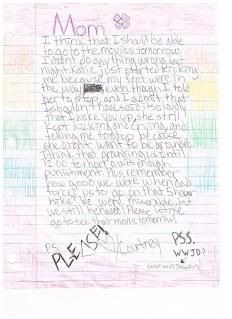 Mom
I think that I should be able
to go to the movies tomorrow.
I didn't do any thing wrong last
night. Katie just started kicking
me because my feet were in
the way even though I told
her to stop, and I admit that
I shouldn't have said anything
that I woke you up, she still
kept kicking me crying, and
telling me to stop because
she didn't want to be grounded.
I think the grounding until
12:00 tomorrow is enough
punishment. Plus, remember
how good we were when dad
forced us to go on that
hike? We were miserable, but
we still behaved! Please let me
go to see that movie tomorrow!
P.S. PLEASE!
Courtney
PSS.
WWJD?